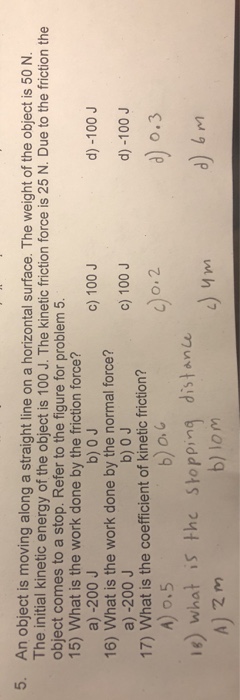 5. An object is moving along a straight line on a horizontal surface. The weight of the object is 50 N.
The initial kinetic energy of the object is 100 J. The kinetic friction force is 25 N. Due to the friction the
object comes to a stop. Refer to the figure for problem 5.
15) What is the work done by the friction force?
a) -200 J b) 0 J c) 100 J d) -100 J
16) What is the work done by the normal force?
a) -200 J b) 0 J c) 100 J d) -100 J
17) What is the coefficient of kinetic friction?
A) 0.5 b) 0.6 c) 0.2 d) 0.3
18) what is the stopping distance
A) 2m b) 10m c) 4m d) 6m